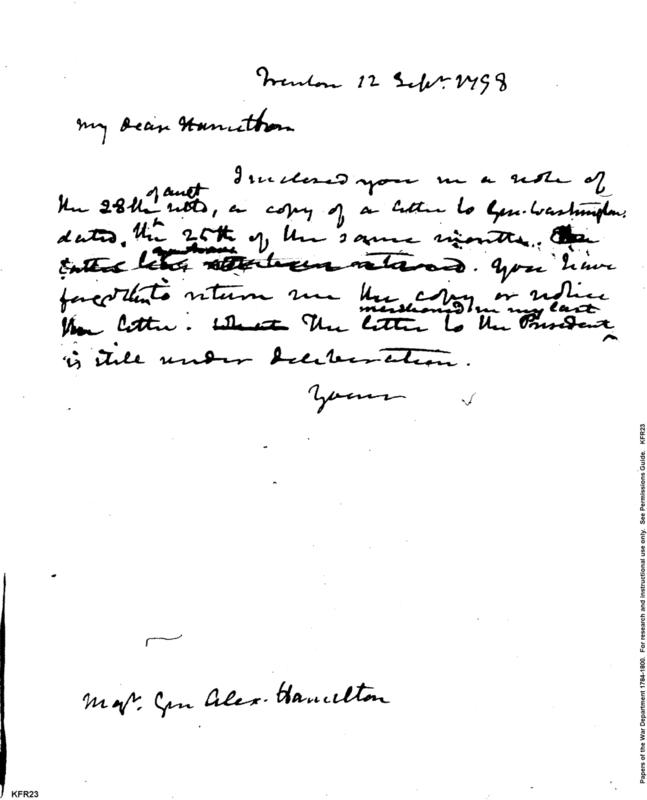 Trenton 12 Sept. 1798
My Dear Hamilton
I inclosed you in a note of
of augt
the 28th ulto, a copy of a letter to Gen. Washington,
dated, the 25th of the same month. The
letter has been returned. You have
forgotten to return me the copy or notice
mentioned in my last
the letter. What The letter to the President
is still under deliberation.
Yours
Majr. Gen Alex. Hamilton
KFR23
Papers of the War Department 1784-1800. For research and instructional use only. See Permissions Guide. KFR23